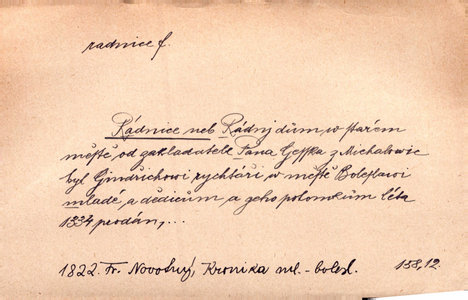 radnice f.
Rádnice neb Rádnj dům, w starém
městě od zakladatele Pana Gesska z Michalowic
byl Gjndřichowi rychtáři, w městě Boleslawi
mladé, a dědicům a geho potomkům léta
1334 prodán,...
1822. Fr. Novotný, Kronika ml.-bolesl. 158,12.